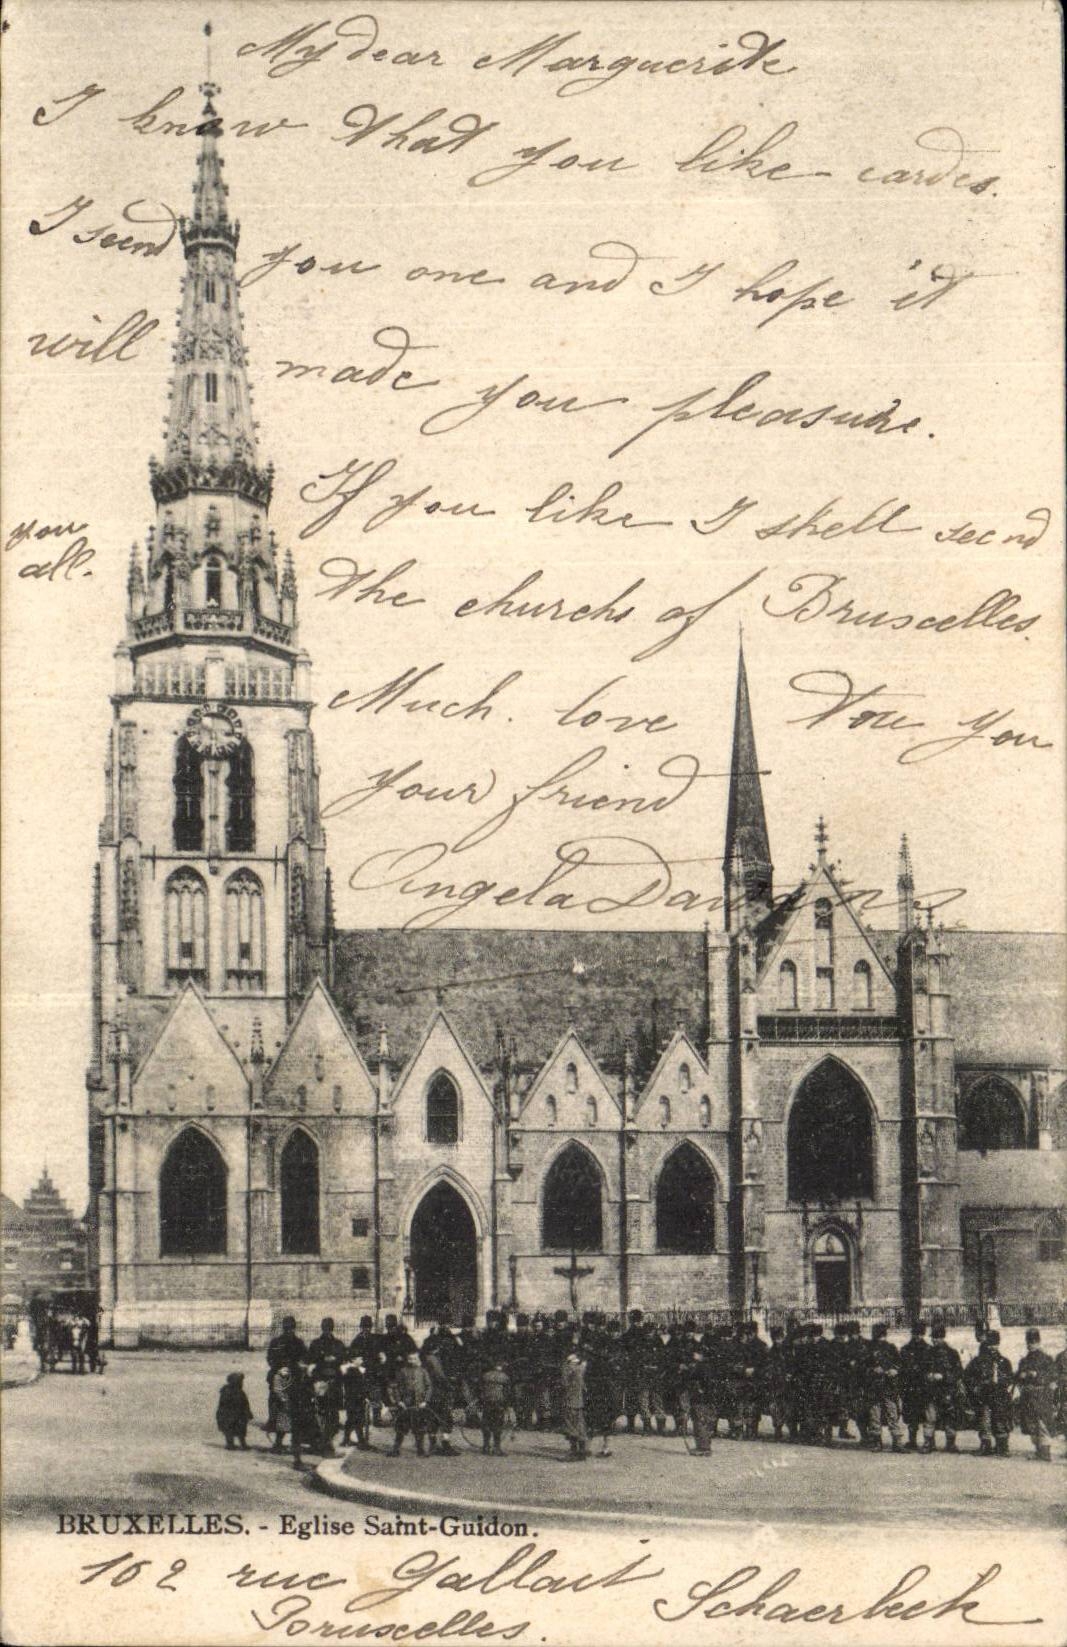 My dear Marguerite
I know that you like cardes.
I seend you one and I hope it
will made you pleasure.
If you like I shell seend
you
all.
the churchs of Bruxcelles.
Much. love tou you
your friend
Angela
BRUXELLES. - Eglise Saint-Guidon.
162 rue Gallait Schaerbeek
Bruxcelles.